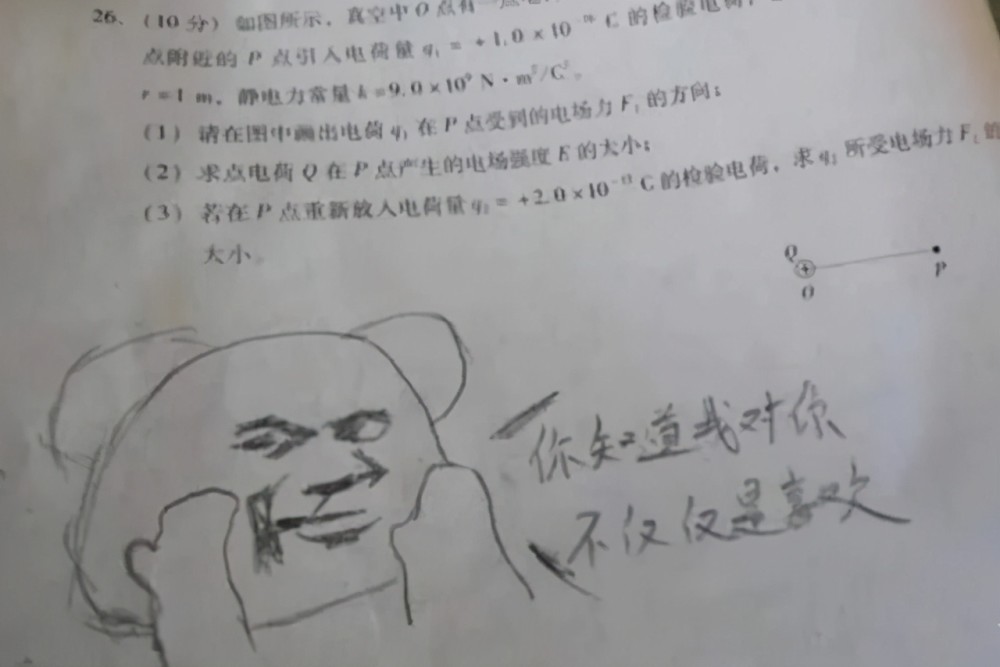 26.（10 分）如图所示，真空中 O 点有一点电
点附近的 P 点引入电荷量 q₁ = +1.0×10 C 的检验电荷，
r=1 m，静电力常量 k=9.0×10⁹ N·m²/C²。
（1）请在图中画出电荷 q₁ 在 P 点受到的电场力 F₁ 的方向；
（2）求点电荷 Q 在 P 点产生的电场强度 E 的大小；
（3）若在 P 点重新放入电荷量 q₂ = +2.0×10 C 的检验电荷，求 q₂ 所受电场力 F₂ 的
大小。
Q
+
O
P
你知道我对你
不仅仅是喜欢